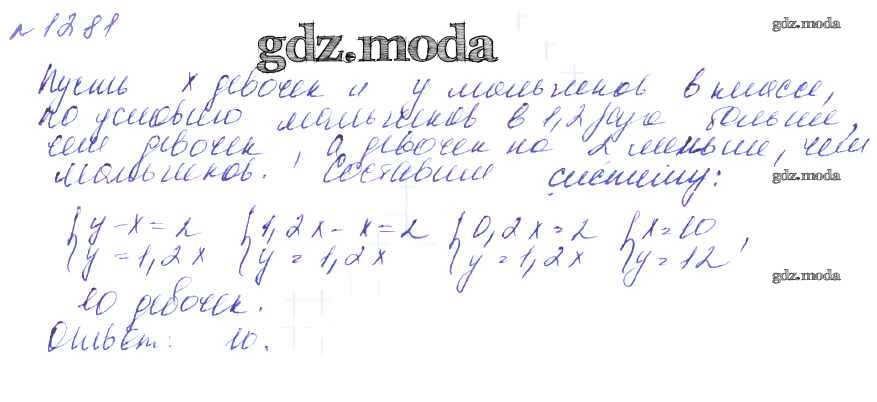 № 1281
gdz.moda
gdz.moda
Пусть x девочек и y мальчиков в классе,
по условию мальчиков в 1,2 раза больше,
чем девочек, а девочек на 2 меньше, чем
мальчиков. Составим систему:
gdz.moda
{y-x=2 {1,2x-x=2 {0,2x=2 {x=10
{y=1,2x {y=1,2x {y=1,2x {y=12,
gdz.moda
10 девочек.
Ответ: 10.